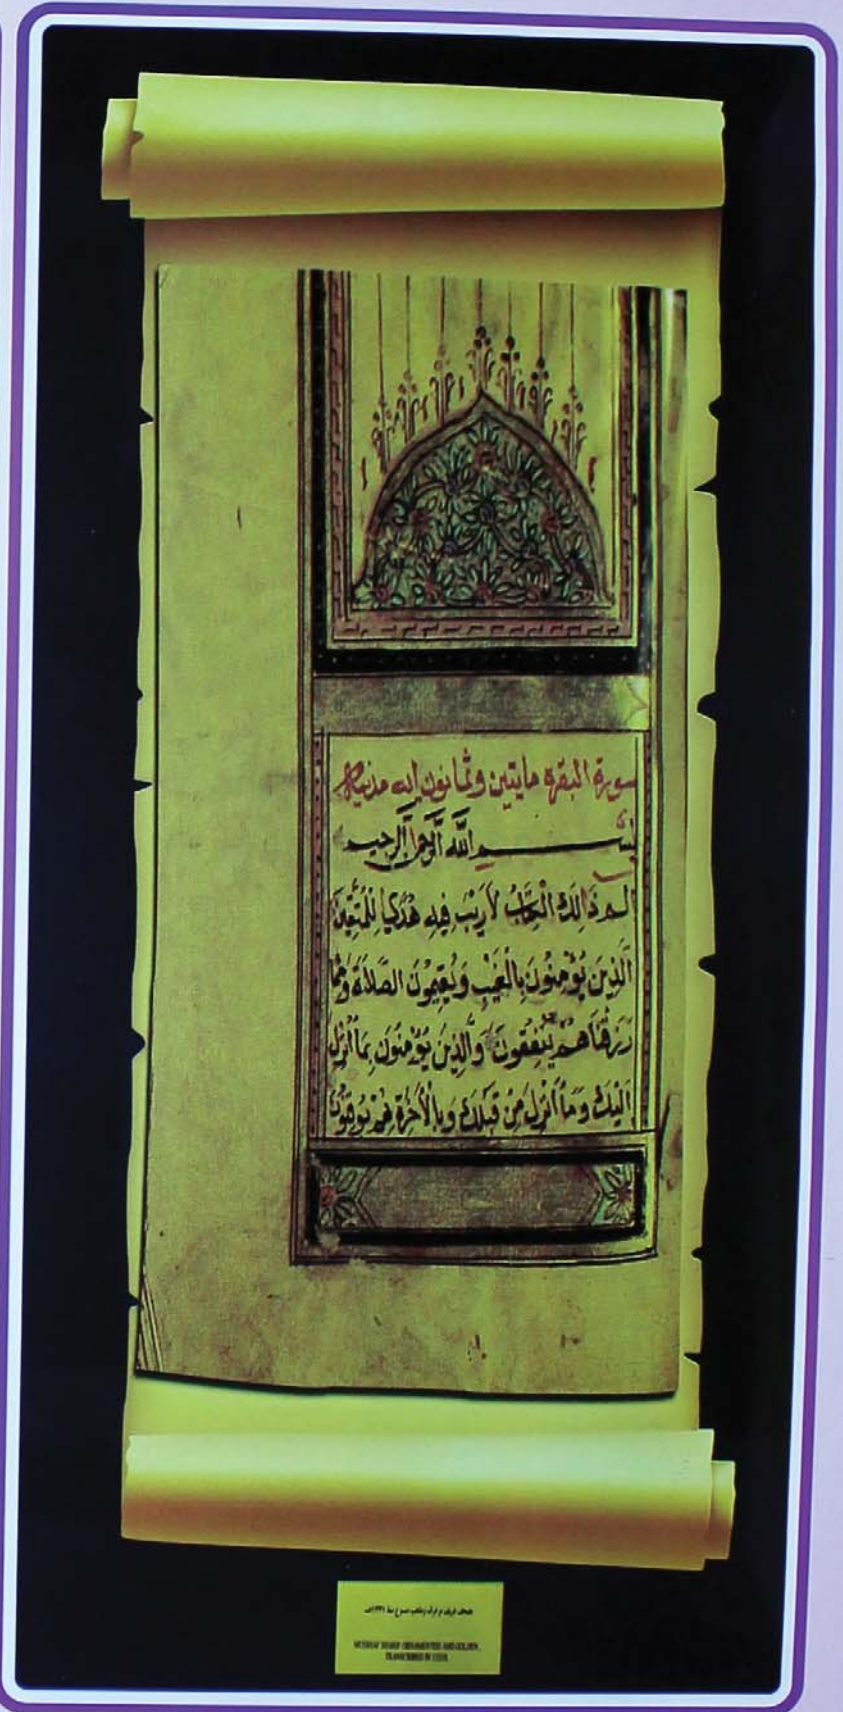 سورة البقره مايتين وثمانون ايه مدنيه
بســـم الله الرحمن الرحيم
الم ذَالِكَ الْكِتَابُ لَارَيْبَ فِيهِ هُدًى لِلْمُتَّقِينَ
الَّذِينَ يُؤْمِنُونَ بِالْغَيْبِ وَيُقِيمُونَ الصَّلَاةَ وَمِمَّا
رَزَقْنَاهُمْ يُنْفِقُونَ وَالَّذِينَ يُؤْمِنُونَ بِمَا أُنْزِلَ
اِلَيْكَ وَمَا اُنْزِلَ مِنْ قَبْلِكَ وَبِالْاَخِرَةِ هُمْ يُوقِنُونَ
مصحف شريف مزخرف ومذهب
MUSHAF SHARIF ORNAMENTED AND GOLDEN,
TRANSCRIBED IN